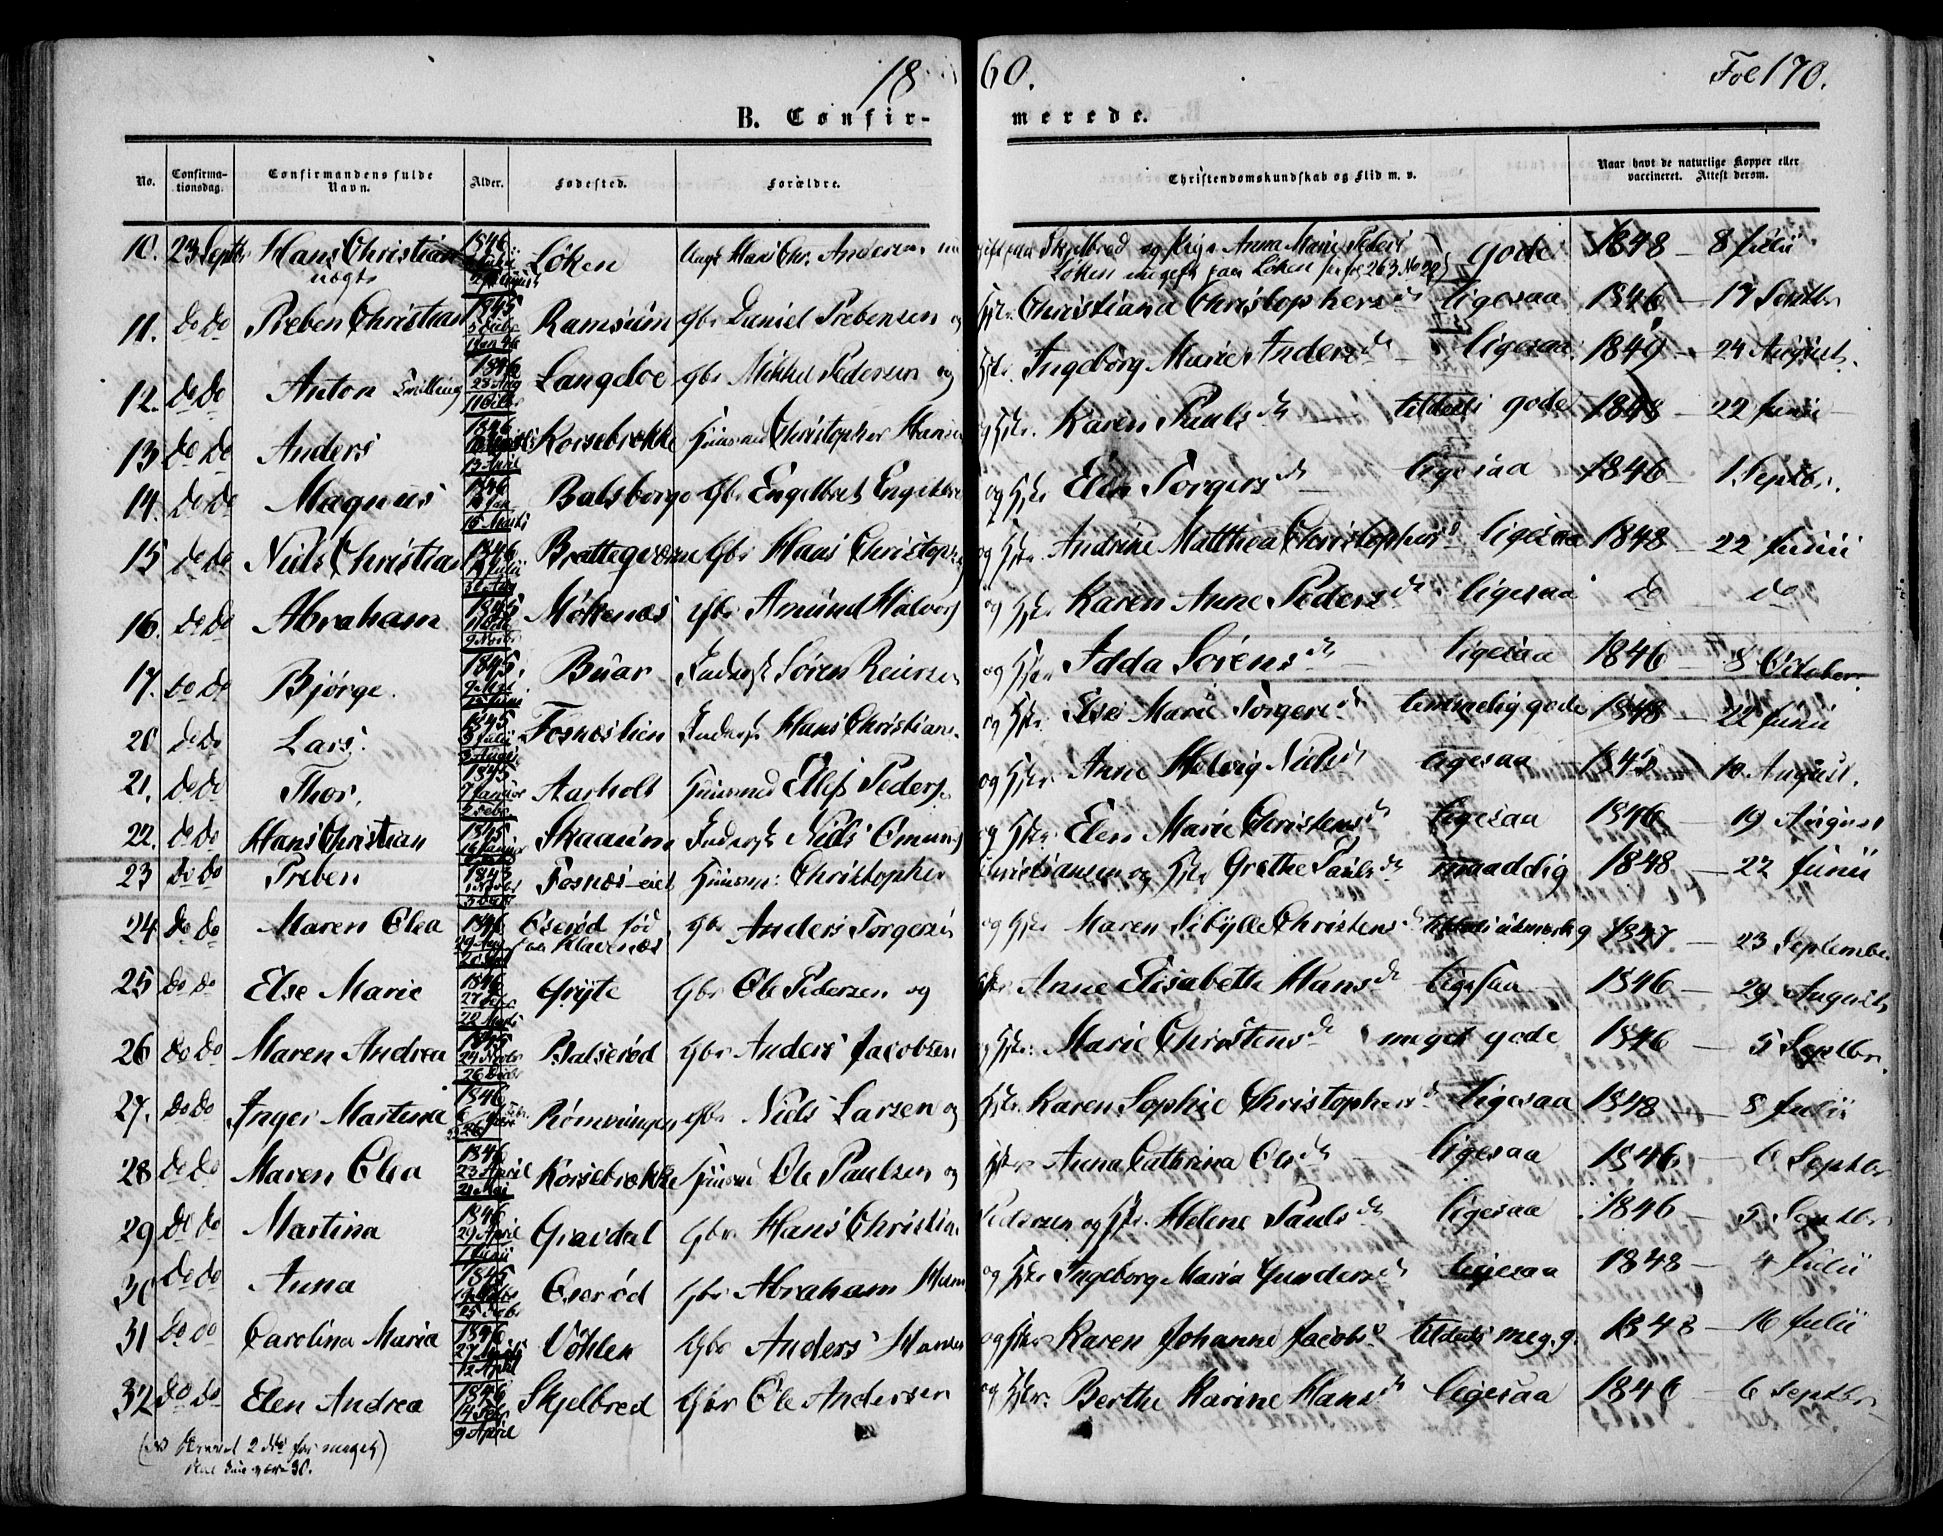 1860.
Fol 170.
B. Confirmerede.
No. Confirmationsdag. Confirmandens fulde Navn. Alder. Fødested. Forældre. Christendomskundskab og Flid m. v. Naar havt de naturlige Kopper eller vaccineret. Attest derom.
10. 23 Septbr Hans Christian uægte 1846 Løken Ungk Hans Chr. Andersen Skjelbred og Pige Anna Marie Peders Løken gode 1848 – 8 Julii
11. do do Preben Christian 1845 Ramsum Gbr Daniel Prebensen og Hstr. Christiana Christophersd ligesaa 1846 – 17 Septbr
12. do do Anton Tvilling 1846 28 Aug 11 Octbr Langløe Gbr Mikkel Pedersen og Hstr. Ingeborg Marie Andersd ligesaa 1849 – 24 August.
13 do do Anders 1846 13 April Korsebrække Huusmd Christopher Hansen og Hstr. Karen Paulsd tildeels gode 1848 – 22 Junii
14. do do Magnus 1846 Jan 15 Marts Balsberge Gbr Engelbret og Hstr Elen Torgersd ligesaa 1846 – 1. Septbr.
15 do do Niels Christian 1846 Julii Brattegjerne Gbr Hans Christoph og Hstr. Andrine Matthea Christophersd ligesaa 1848 – 22 Junii
16. do do Abraham 1845 9 Novbr Møkenæs Gbr Amund Halvors og Hstr Karen Anne Pedersd ligesaa do do
17. do do Bjørge. 1845 Buar Inderst Søren Reiersen og Hstr Idda Sørensd ligesaa 1846 – 8 October
20 do do Lars. 1845 Julii Fosnæslien Inderst Hans Christians og Hstr. Else Marie Torgersd temmelig gode 1848 – 22 Junii
21. do do Thor. 1845 7 Januar 2 Febr. Aarholt Huusmd Ellef Peders og Hstr Anne Helvig Nielsd ligesaa 1845 10 August.
22. do do Hans Christian 1845 16 Januar Skaaum Inderst Niels Omunds og Hstr. Elen Marie Christensd ligesaa 1846 – 19 August
23 do do Preben 1845 Fosnæs-eiet Huusm: Christopher Christiansen og Hstr Grethe Paulsd maadelig 1848 – 22 Junii
24 do do Maren Olea 1846 Oserød fød paa Klavenæs Gbr Anders Torgersen og Hstr Maren Sibylle Christensd tildeels udmærk g 1847 – 23 September
25 do do Else Marie 1846 22 Marts Gryte Gbr Ole Pedersen og Hstr Anne Elisabeth Hansd ligesaa 1846 – 29 August
26 do do Maren Andrea 1845 24 Novbr 26 Decbr Balserød Gbr Anders Jacobsen og Hstr: Marie Christensd meget gode 1846 – 5 Septbr.
27. do do Inger Martina 1846 Rømminingen Gbr Niels Larsen og Hstr. Karen Sophie Christophersd ligesaa 1848 – 8 Julii
28 do do Maren Olea 1846 23 April 21 Mai Korsebrække Huusmd Ole Paulsen og Hstr Anna Cathrina Olsd ligesaa 1846 – 6 Septbr
29 do do Martina 1846 29 April 1 Junii Gravdal Gbr Hans Christian Pedersen og Hstr. Helene Paulsd ligesaa 1846 – 5 Septbr
30 do do Anna 1845 Oserød Gbr Abraham Hans og Hstr Ingeborg Maria Gundersd ligesaa 1848 – 4 Julii
31 do do Carolina Maria 1846 27 Marts 12 April Vøhlen Gbr Anders Hansen og Hstr Karen Johanne Jacobsd tildeels meg. g. 1848 – 16 Julii
32 do do Elen Andrea 1846 14 Febr 9 April Skjelbred Gbr Ole Andersen og Hstr. Berthe Karine Hansd ligesaa 1846 – 6 Septbr
2 No for meget)
30.